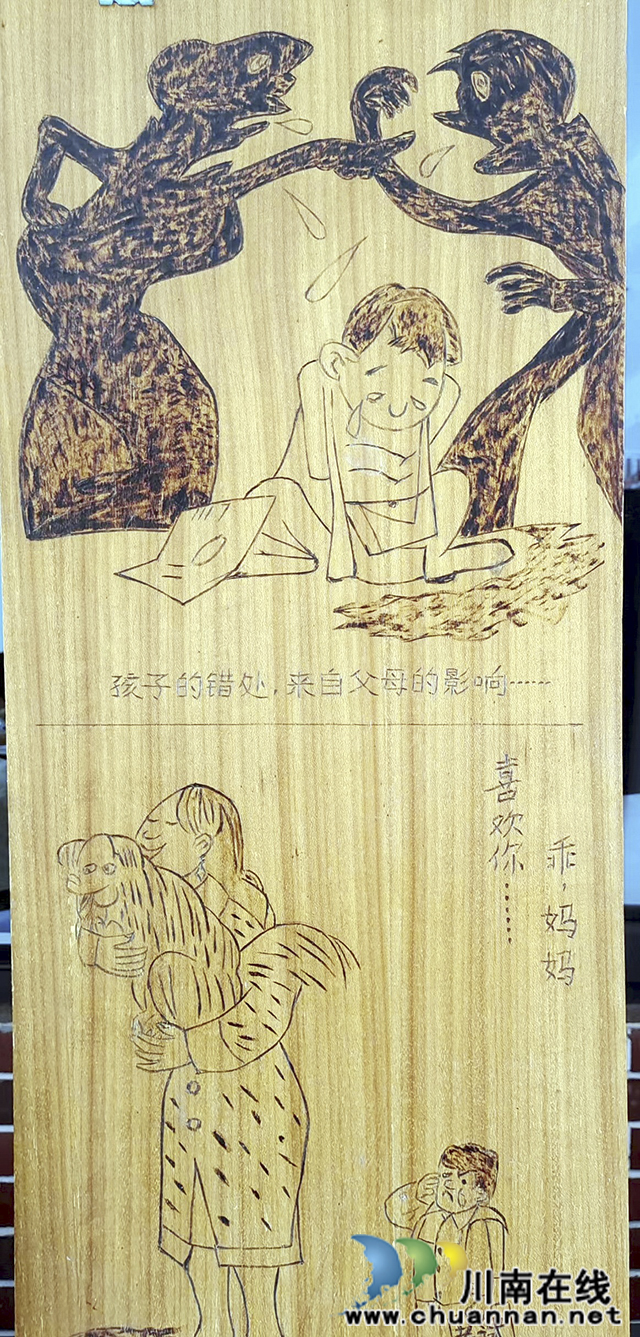 孩子的错处，来自父母的影响……
乖，妈妈
喜欢你……
川南在线
www.chuannan.net